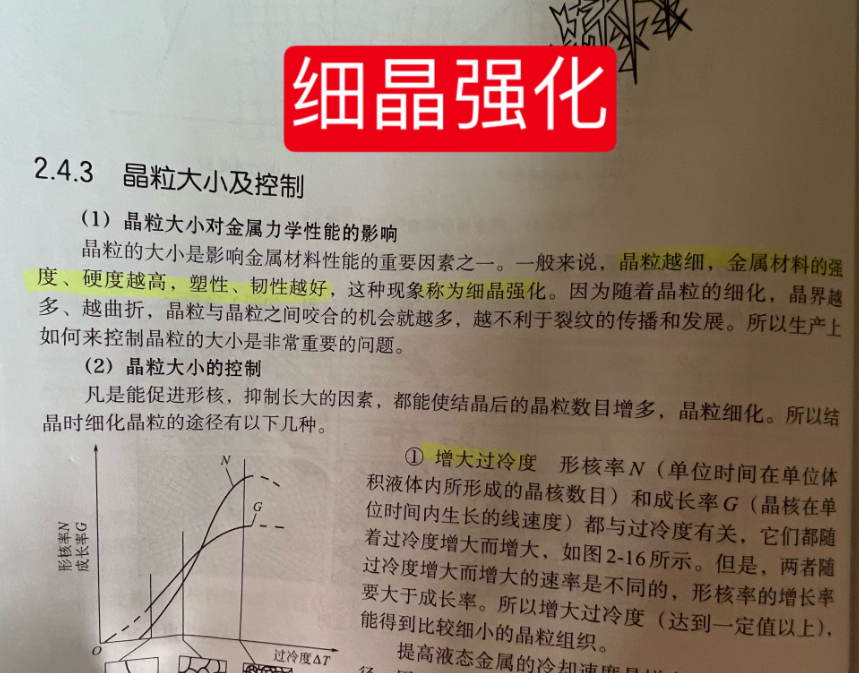 细晶强化
2.4.3 晶粒大小及控制
(1) 晶粒大小对金属力学性能的影响
晶粒的大小是影响金属材料性能的重要因素之一。一般来说，晶粒越细，金属材料的强
度、硬度越高，塑性、韧性越好，这种现象称为细晶强化。因为随着晶粒的细化，晶界越
多、越曲折，晶粒与晶粒之间咬合的机会就越多，越不利于裂纹的传播和发展。所以生产上
如何来控制晶粒的大小是非常重要的问题。
(2) 晶粒大小的控制
凡是能促进形核，抑制长大的因素，都能使结晶后的晶粒数目增多，晶粒细化。所以结
晶时细化晶粒的途径有以下几种。
① 增大过冷度 形核率N（单位时间在单位体
积液体内所形成的晶核数目）和成长率G（晶核在单
位时间内生长的线速度）都与过冷度有关，它们都随
着过冷度增大而增大，如图2-16所示。但是，两者随
过冷度增大而增大的速率是不同的，形核率的增长率
要大于成长率。所以增大过冷度（达到一定值以上），
能得到比较细小的晶粒组织。
提高液态金属的冷却速度是
N
G
形核率N
成长率G
O
过冷度ΔT